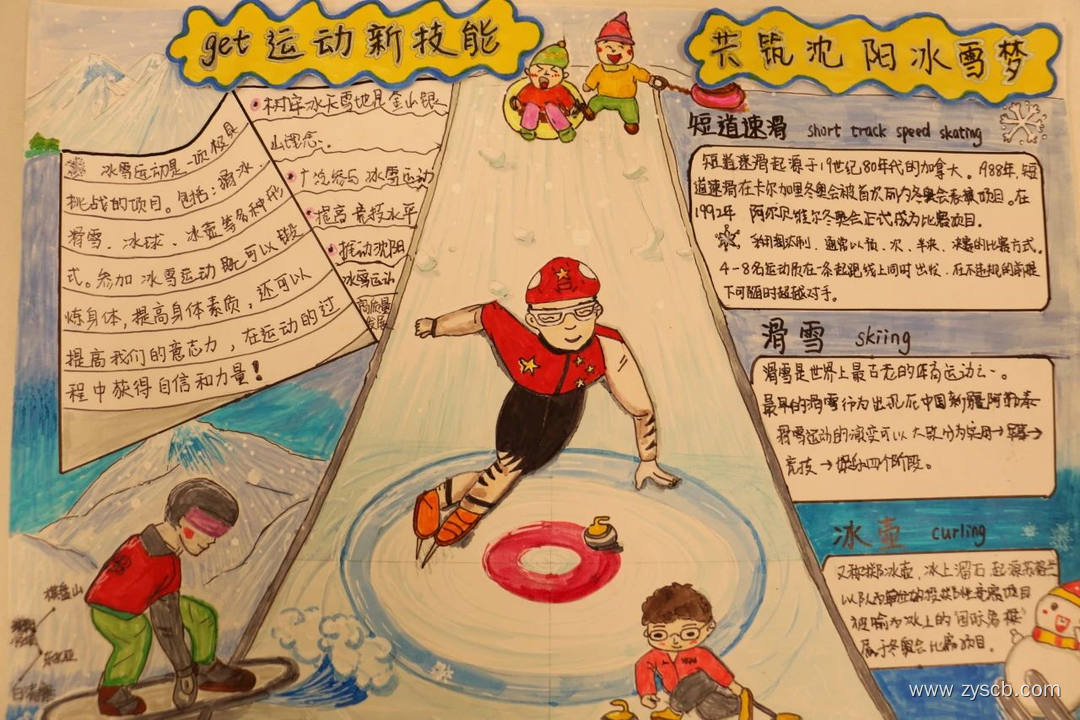 get 运动新技能
共筑沈阳冰雪梦
树牢冰天雪地是金山银
山理念。
广泛参与冰雪运动
提高竞技水平
推动沈阳
冰雪运动
高质量
发展
冰雪运动是一项极具
挑战的项目。包括：溜冰、
滑雪、冰球、冰壶等多种形
式。参加冰雪运动既可以锻
炼身体，提高身体素质，还可以
提高我们的意志力，在运动的过
程中获得自信和力量！
短道速滑 short track speed skating
短道速滑起源于19世纪80年代的加拿大。1988年，短
道速滑在卡尔加里冬奥会被首次列为冬奥会表演项目。在
1992年 阿尔贝维尔冬奥会正式成为比赛项目。
采用淘汰制，通常以预、次、半决、决赛的比赛方式。
4-8名运动员在一条起跑线上同时出发，在不违规的前提
下可随时超越对手。
滑雪 skiing
滑雪是世界上最古老的体育运动之一。
最早的滑雪行为出现在中国新疆阿勒泰
滑雪运动的演变可以大致分为实用→
竞技→四个阶段。
冰壶 curling
又称掷冰壶，冰上溜石 起源苏格兰
以队为单位的投掷性竞赛项目
被喻为冰上的"国际象棋"
属于冬奥会比赛项目。
棋盘山
东北亚
白清寨
www.zyscb.com